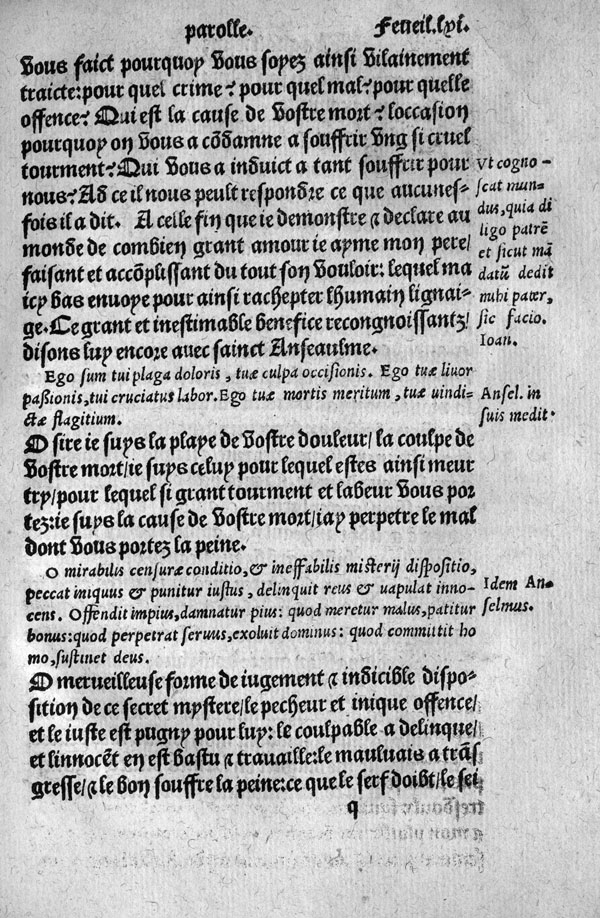 parolle. Feueil.lvi.
Vous faict pourquoy Vous soyez ainsi Vilainement
traicte: pour quel crime? pour quel mal? pour quelle
offence? Qui est la cause de Vostre mort? loccasion
pourquoy on Vous a cōdāmne a souffrir Vng si cruel
tourment? Qui Vous a induict a tant souffrir pour
nous? Ad ce il nous peult respondre ce que aucunes-
fois il a dit. A celle fin que ie demonstre & declare au
monde de combien grant amour ie ayme mon pere/
faisant et accōplissant du tout son Vouloir: lequel ma
icy bas enuoye pour ainsi rachepter lhumain lignai-
ge. Ce grant et inestimable benefice recongnoissantz/
disons luy encore auec sainct Anseaulme.
Vt cogno-
scat mun-
dus, quia di
ligo patrē
et sicut mā
datū dedit
mihi pater,
sic facio.
Ioan.
Ego sum tui plaga doloris, tuæ culpa occisionis. Ego tuæ liuor
paßionis, tui cruciatus labor. Ego tuæ mortis meritum, tuæ uindi-
ctæ flagitium.
Ansel. in
suis medit.
O sire ie suys la playe de Vostre douleur/ la coulpe de
Vostre mort/ ie suys celuy pour lequel estes ainsi meur
try/ pour lequel si grant tourment et labeur Vous por
tez: ie suys la cause de Vostre mort/ iay perpetre le mal
dont Vous portez la peine.
O mirabilis censuræ conditio, & ineffabilis misterij dispositio,
peccat iniquus & punitur iustus, delinquit reus & uapulat inno-
cens. Offendit impius, damnatur pius: quod meretur malus, patitur
bonus: quod perpetrat seruus, exoluit dominus: quod committit ho
mo, sustinet deus.
Idem An-
selmus.
O merueilleuse forme de iugement & indicible dispo-
sition de ce secret mystere/ le pecheur et inique offence/
et le iuste est pugny pour luy: le coulpable a delinque/
et linnocēt en est bastu & trauaille: le mauluais a trās
gresse/ & le bon souffre la peine: ce que le serf doibt/ le sei
q